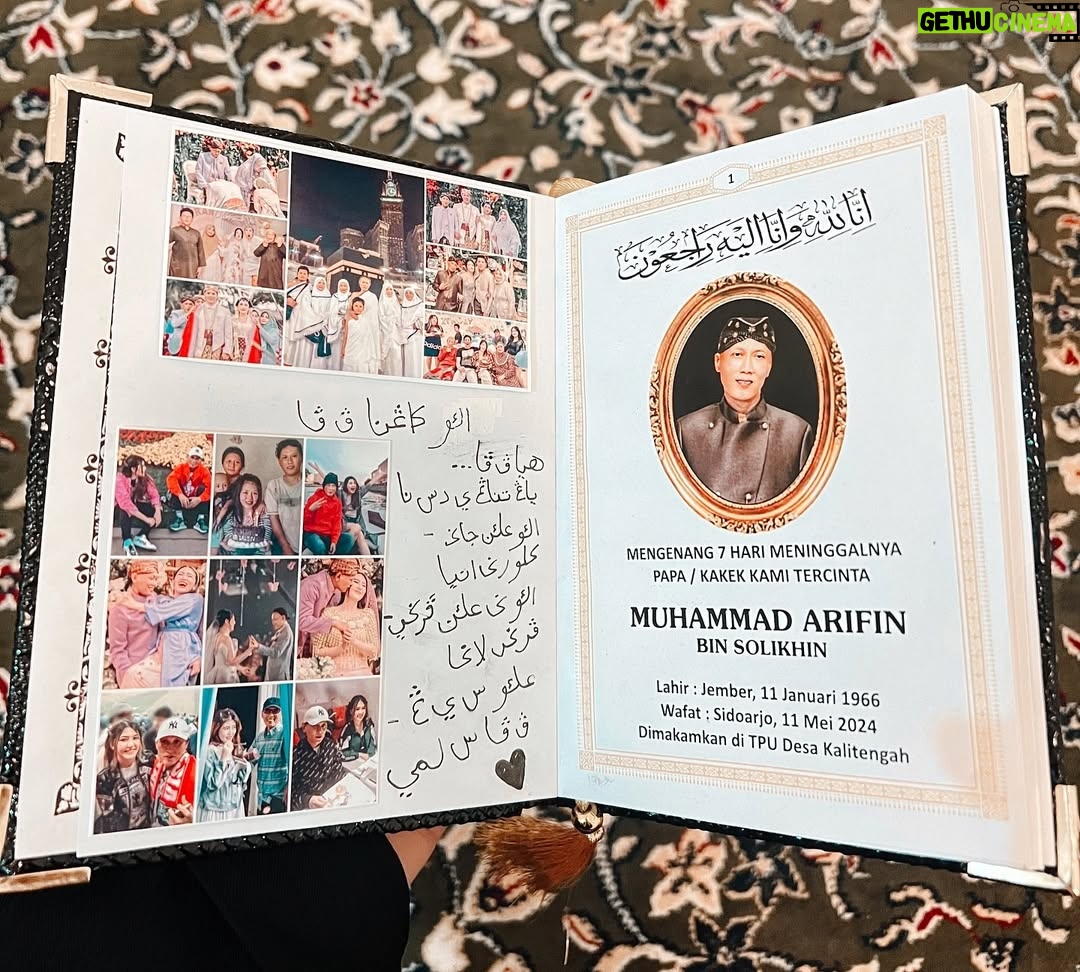 GETHUCINEMA
1
انا لله وانا اليه راجعون
اكو كاڠن ڤ ڤا
هيا ڤ ڤا...
اكو عكن
اكو
عكو س ي ڠ -
ڤ ڤا س لمي
MENGENANG 7 HARI MENINGGALNYA
PAPA / KAKEK KAMI TERCINTA
MUHAMMAD ARIFIN
BIN SOLIKHIN
Lahir : Jember, 11 Januari 1966
Wafat : Sidoarjo, 11 Mei 2024
Dimakamkan di TPU Desa Kalitengah